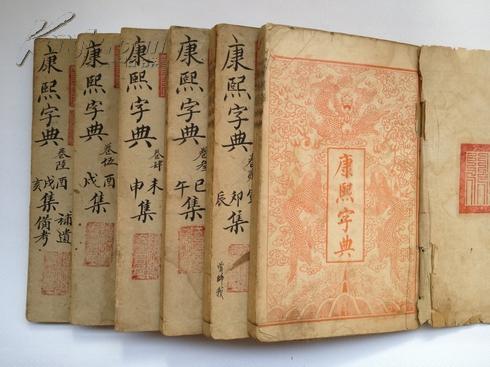 康熙字典
康熙字典
卯
辰
集
康熙字典
卷叁
巳
午
集
康熙字典
卷肆
未
申
集
康熙字典
卷伍
酉
戌
集
康熙字典
卷陸
酉
戌
亥
集
補遺
備考